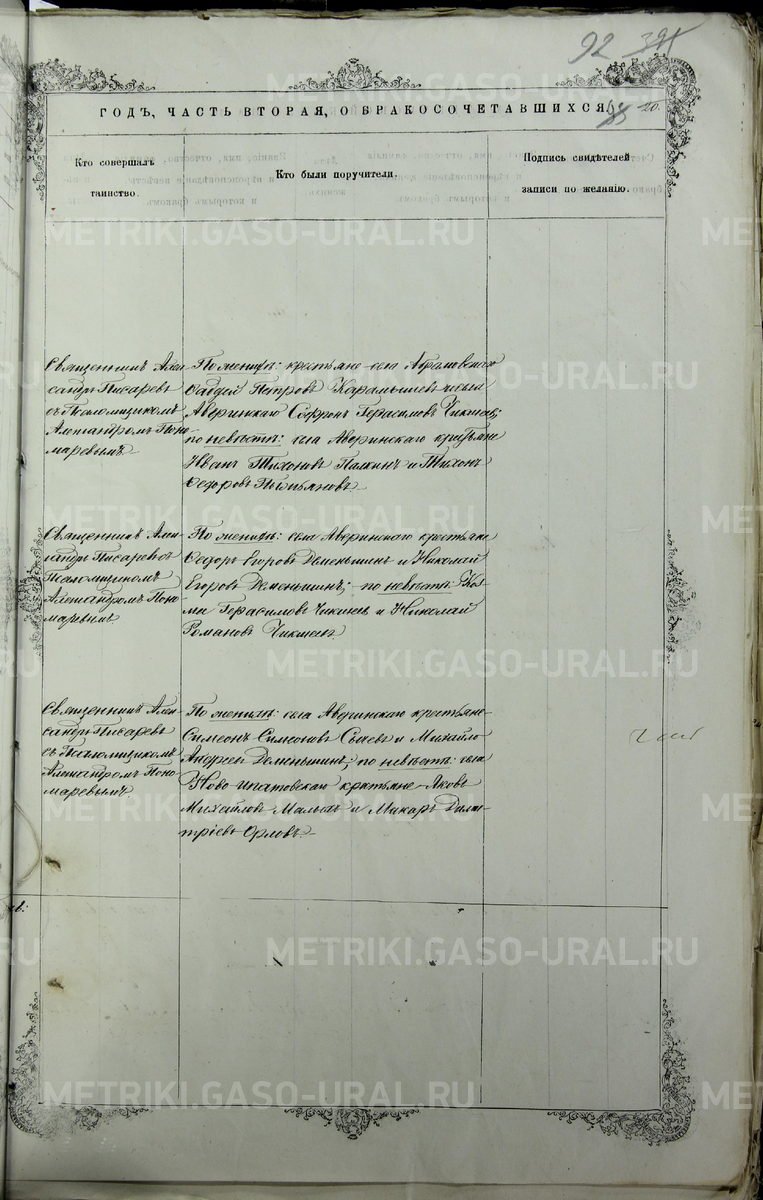 92
ГОДЪ, ЧАСТЬ ВТОРАЯ, О БРАКОСОЧЕТАВШИХСЯ
20.
Кто совершалъ таинство.
Кто были поручители.
Подпись свидѣтелей записи по желанію.
Священникъ Алек-
сандръ Писаревъ
съ Псаломщикомъ
Александромъ Поно-
маревымъ
По женихѣ: крестьяне села Абрамовскаго
Фаддей Петровъ Карамышевъ и села
Аверинскаго Софронъ Герасимовъ Чикишевъ;
по невѣстѣ: села Аверинскаго крестьяне
Иванъ Тихоновъ Палкинъ и Тихонъ
Ѳедоровъ
Священникъ Алек-
сандръ Писаревъ с
Псаломщикомъ
Александромъ Поно-
маревымъ
По женихѣ: села Аверинскаго крестьяне
Ѳедоръ Егоровъ Деменьшинъ и Николай
Егоровъ Деменьшинъ; по невѣстѣ: Коз-
ма Герасимовъ Чикишевъ и Николай
Романовъ Чикишевъ
Священникъ Алек-
сандръ Писаревъ
съ Псаломщикомъ
Александромъ Поно-
маревымъ
По женихѣ: села Аверинскаго крестьяне
Симеонъ Симеоновъ Сысевъ и Михайло
Андреевъ Деменьшинъ; по невѣстѣ: села
Ново-Ипатовскаго крестьяне Яковъ
Михайловъ и Макаръ Дими-
тріевъ Орловъ.
METRIKI.GASO-URAL.RU